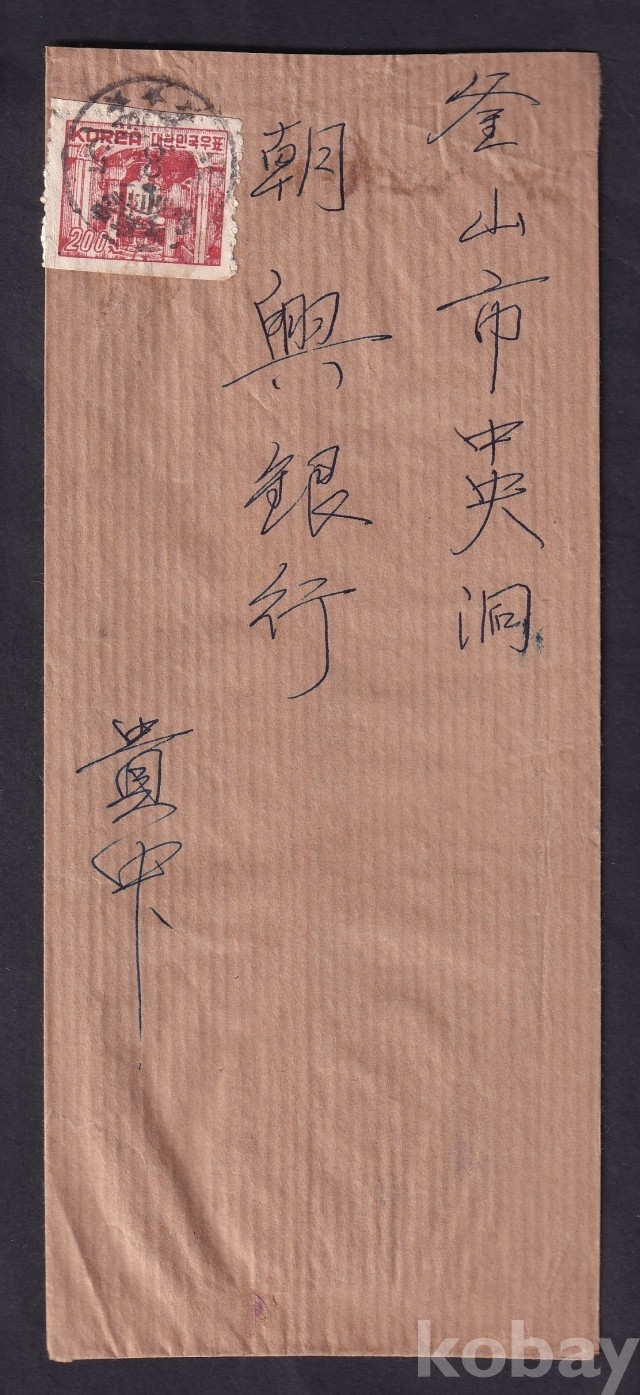 釜山市中央洞
朝興銀行
貴中
KOREA 대한민국우표
200
kobay